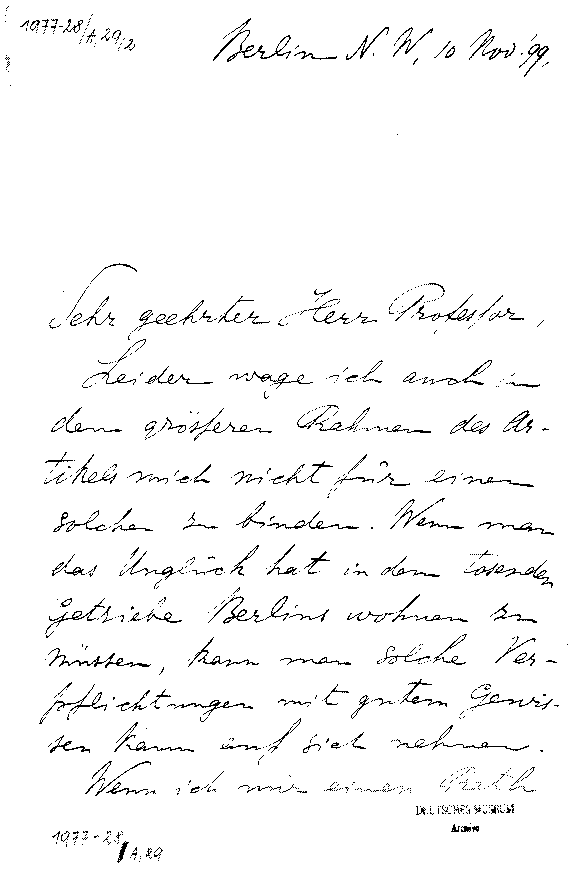 1977-28/A,29/2
Berlin N. W, 10 Nov. '99,
Sehr geehrter Herr Professor,
Leider wage ich auch in
dem grösseren Rahmen des Ar-
tikels mich nicht für einen
solchen zu binden. Wenn man
das Unglück hat in dem tosenden
Getriebe Berlins wohnen zu
müssen, kann man solche Ver-
pflichtungen mit gutem Gewis-
sen kaum auf sich nehmen.
Wenn ich mir einen Rath
DEUTSCHES MUSEUM
Archive
1977-28/A,29